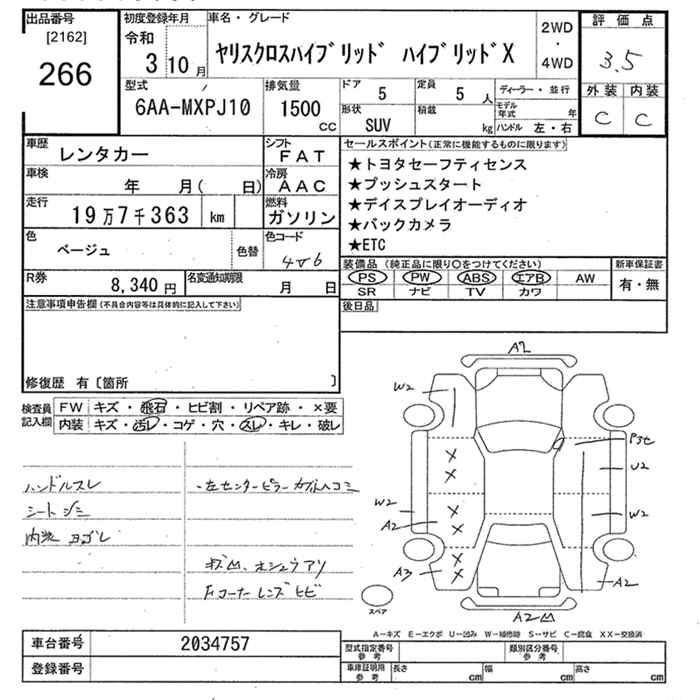 出品番号
[2162]
266
初度登録年月
令和
3 10 月
車名・グレード
ヤリスクロスハイブリッド ハイブリッドX
2WD
・
4WD
評価点
3.5
外装 内装
C C
型式
6AA-MXPJ10
排気量
1500
CC
ドア
5
定員
5 人
形状
SUV
積載
kg
ディーラー・並行
モデル年式 年
ハンドル 左・右
車歴
レンタカー
シフト
FAT
車検
年 月( 日)
冷房
AAC
走行
19万7千363 km
燃料
ガソリン
色
ベージュ
色替
色コード
4V6
R券
8,340 円
名変通知期限
月 日
セールスポイント(正常に機能するものに限ります)
★トヨタセーフティセンス
★プッシュスタート
★デイスプレイオーディオ
★バックカメラ
★ETC
装備品(純正品に限り○をつけてください)
新車保証書
PS PW ABS エアB AW
SR ナビ TV カワ
有・無
後日品
注意事項申告欄(不具合内容等は具体的に記入して下さい)
修復歴 有〔箇所 〕
検査員
記入欄
FW キズ・飛石・ヒビ割・リペア跡・×要
内装 キズ・汚レ・コゲ・穴・スレ・キレ・破レ
ハンドルスレ
シートシミ
内装ヨゴレ
・左センターピラーカザトヘコミ
キズ凹、オシュウアリ
Fコーナーレンズヒビ
A2
W2
P3セ
U2
W2
W2
A2
A3
A2
A2凹
スペア
A-キズ E-エクボ U-凹み W-補修跡 S-サビ C-腐食 XX-交換済
車台番号
2034757
登録番号
型式指定番号
参考
類別区分番号
参考
車庫証明用
参考
長さ cm 幅 cm 高さ cm